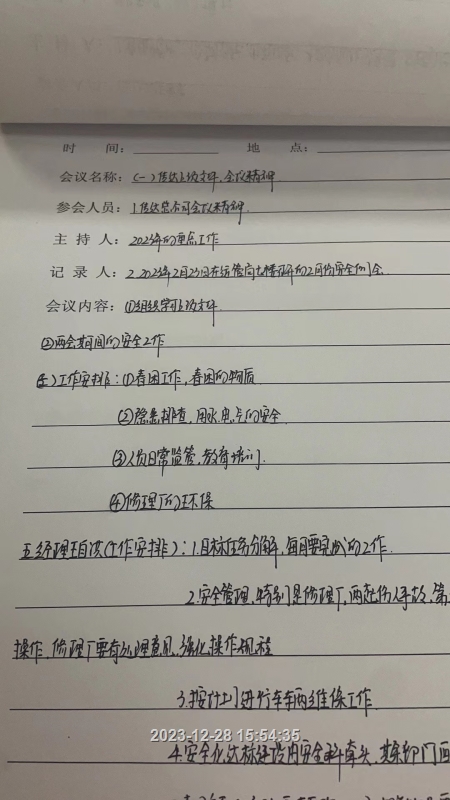 时 间: 地 点:
会议名称: (一)传达上级文件、会议精神
参会人员: 1传达总公司会议精神
主 持 人: 2023年的重点工作
记 录 人: 2.2023年2月23日在运管局大楼召开的2月份安全例会
会议内容: ①组织学习上级文件
②两会期间的安全工作
(三)工作安排: ①春困工作,春困的物质
②隐患排查,用水电气的安全
③人员日常监管,教育培训
④修理厂的环保
五经理王自谈(工作安排): 1.目标任务分解,每月要完成的工作.
2.安全管理,特别是修理厂,两起伤人事故,第
操作,修理厂要有处理意见,强化操作规程
3.按计划进行车辆维保工作
2023-12-28 15:54:35
4.安全化达标建设内安全科牵头,其余部门